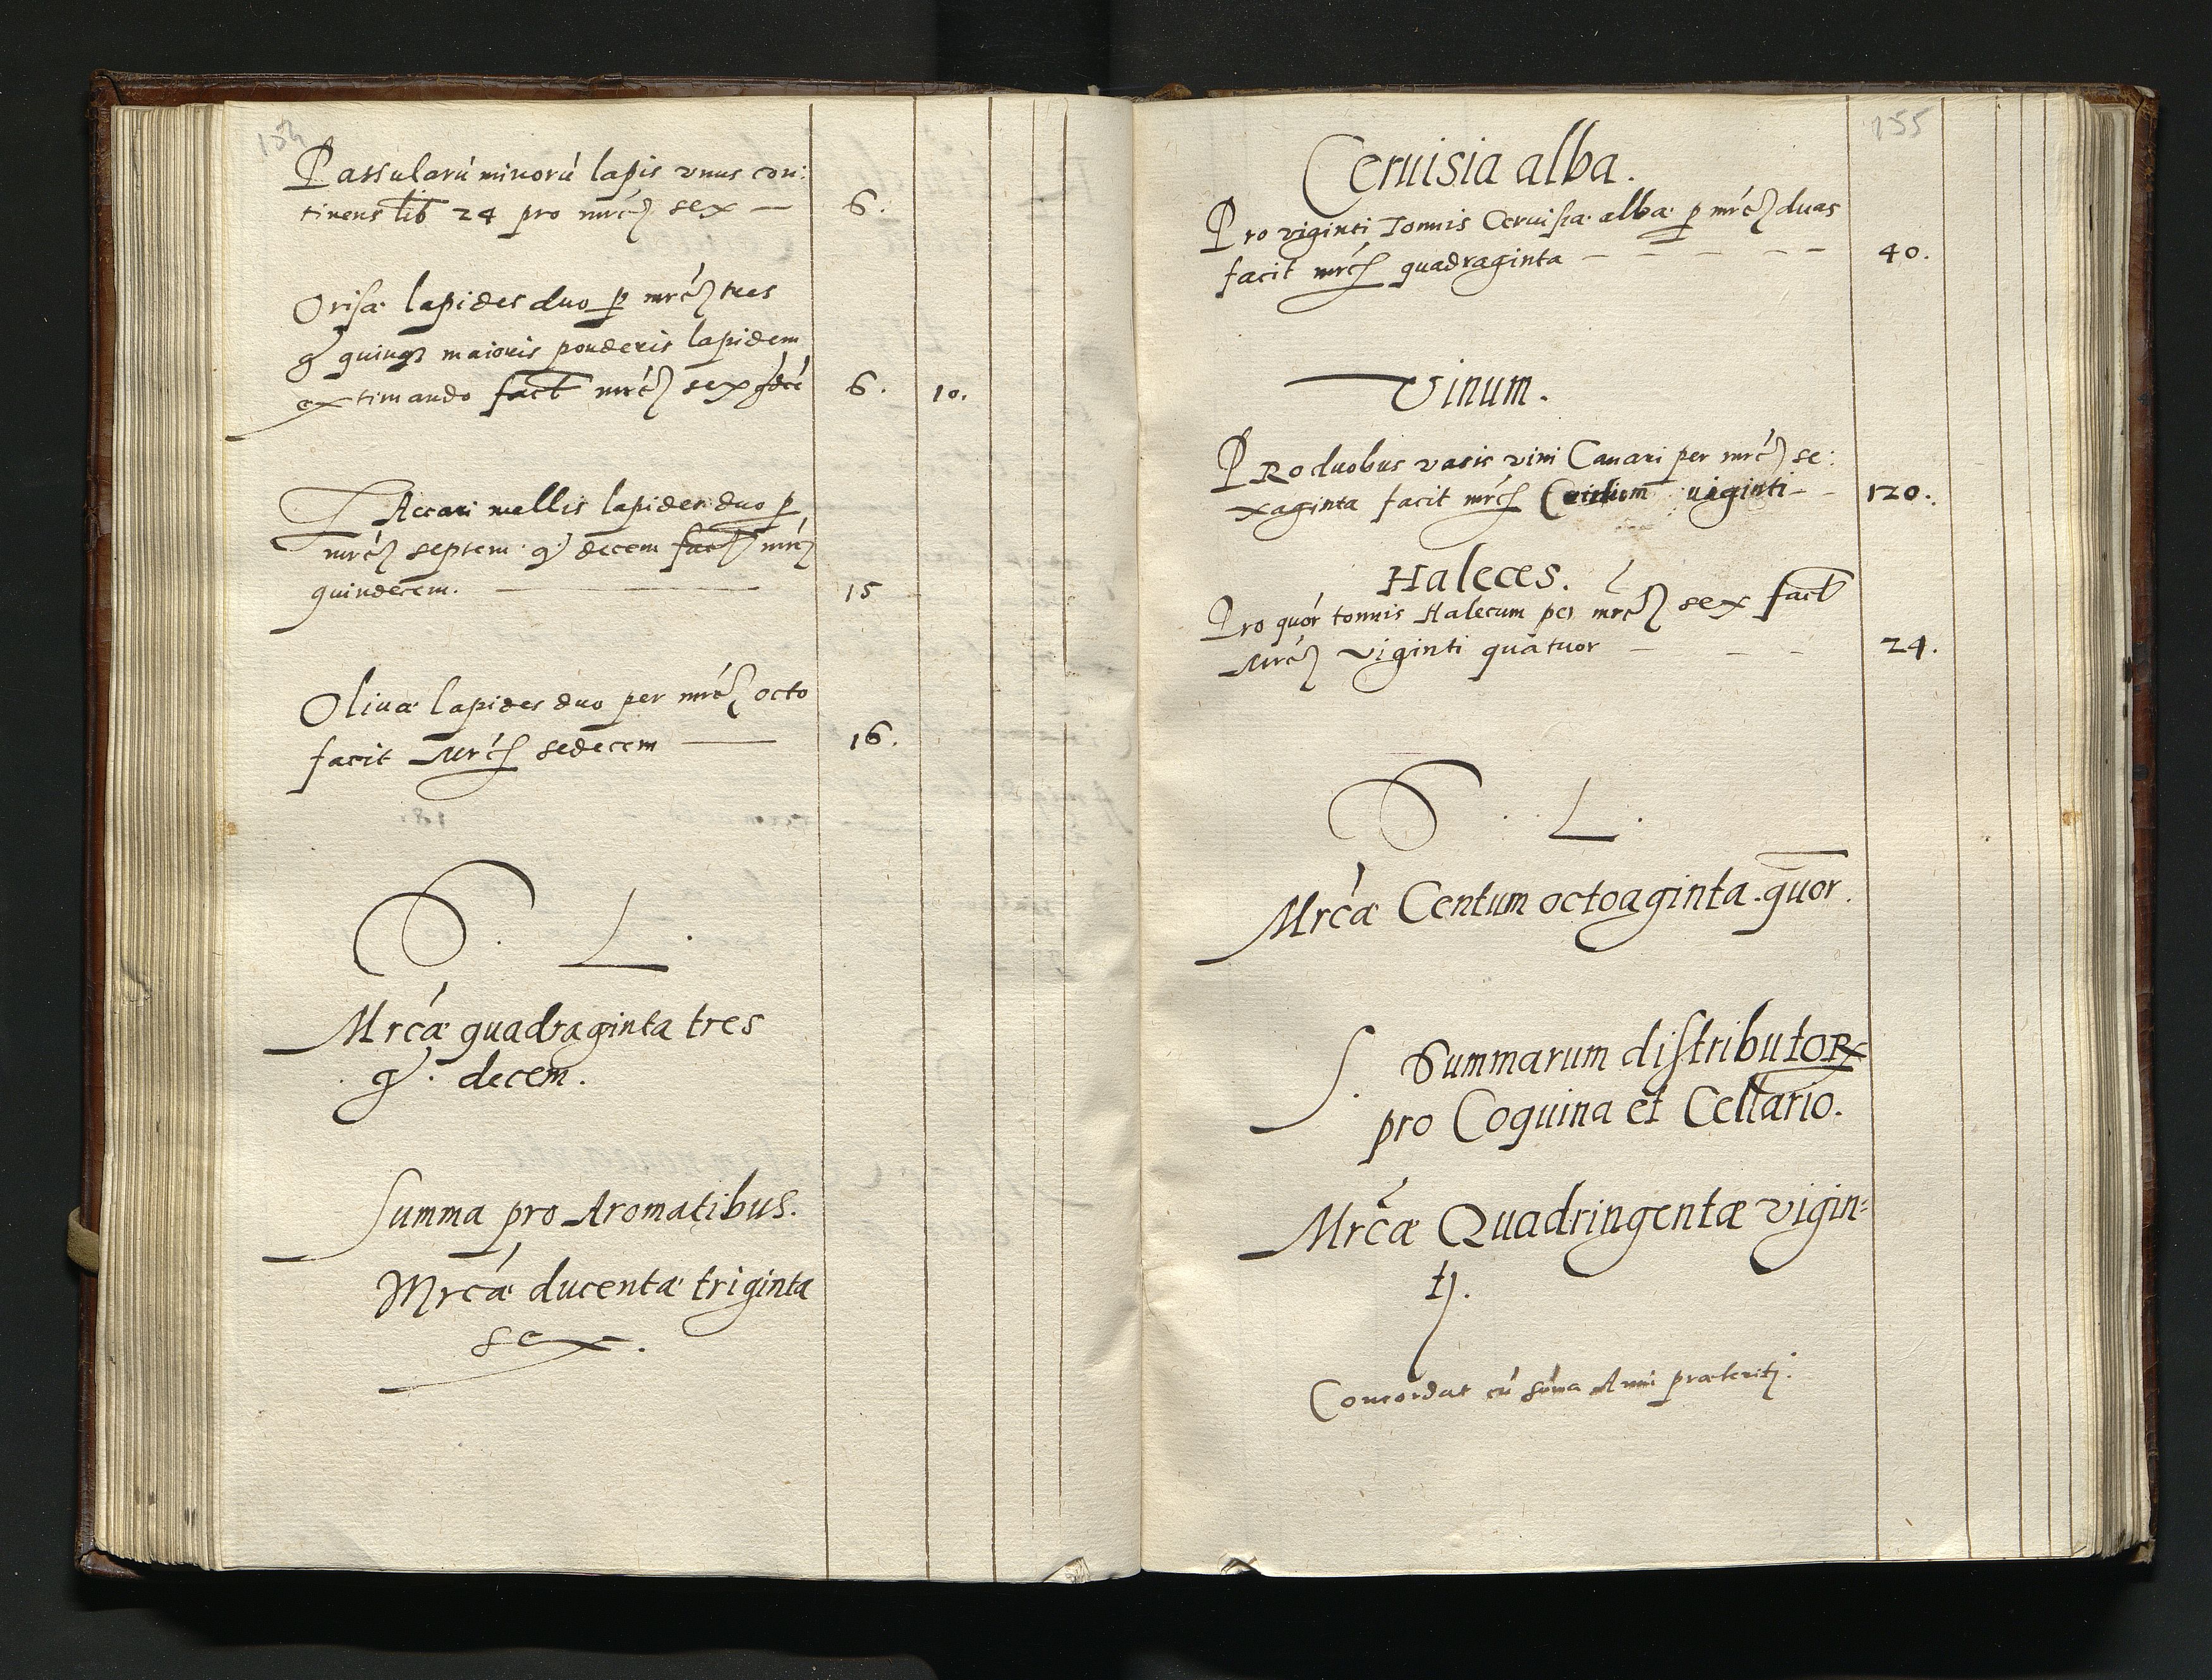 154
Passularú minorú lapis vnus con:
tinens lib 24 pro mrć sex — 6.
Orisæ lapides duo p mrć tres
g quinq3 maioris ponderis lapidem
extimando fact mrć sex g dece 6. 10.
Zaccari mellis lapides duo p
mrć septem g decem fact mrć
quindecem. — — — 15
Olivæ lapides duo per mrć octo
facit Mrć sedecem — 16.
S. L.
Mrcæ quadraginta tres
g. decem.
Summa pro Aromatibus.
Mrcæ ducentæ triginta
sex.
155
Ceruisia alba.
Pro viginti Tonnis Ceruisiæ albæ p mrć duas
facit mrć quadraginta — — — — — 40.
Vinum.
PRo duobus vasis vini Canari per mrć se:
xaginta facit mrć Centum uiginti - - 120.
Haleces.
Pro quór tonnis Halecum per mrć sex fact
Mrć viginti quatuor — — — 24.
S. L.
Mrcæ Centum octoaginta quor.
S. Summarum distributoR
pro Coquina et Cellario.
Mrcæ Quadringentæ vigin:
tj.
Concordat cú súma Anni præteritj.